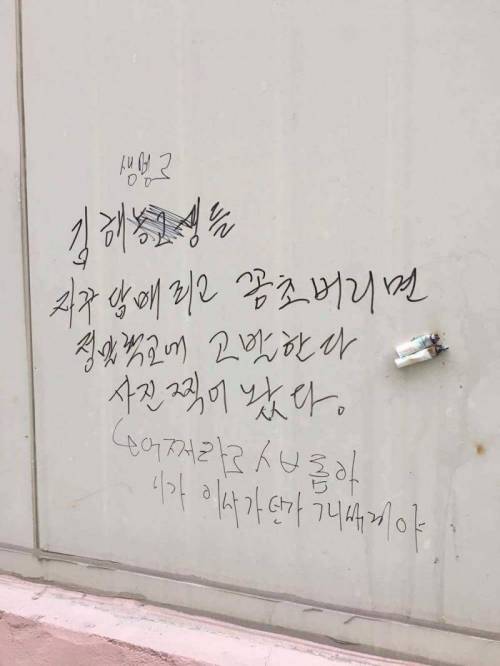 생명고
김해농고생들
자꾸 담배 피고 꽁초버리면
정말 학교에 고발한다
사진 찍어 놨다.
어쩌라고 ㅅㅂ롬아
니가 이사가던가